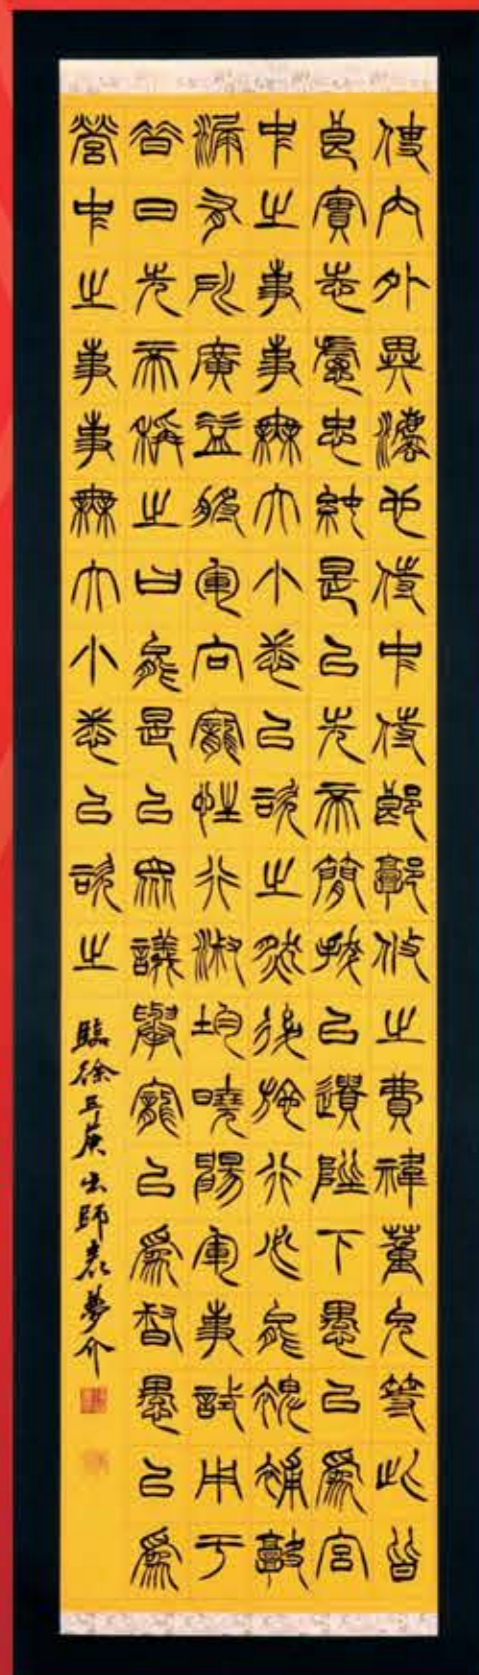 使內外異灋也侍中侍郎郭攸之費禕董允等此皆
良實志慮忠純是以先帝簡拔以遺陛下愚以為宮
中之事事無大小悉以諮之然後施行必能裨補闕
漏有所廣益將軍向寵性行淑均曉暢軍事試用于
昔日先帝稱之曰能是以眾議舉寵以為督愚以為
營中之事事無大小悉以諮之
臨徐三庚出師表夢介